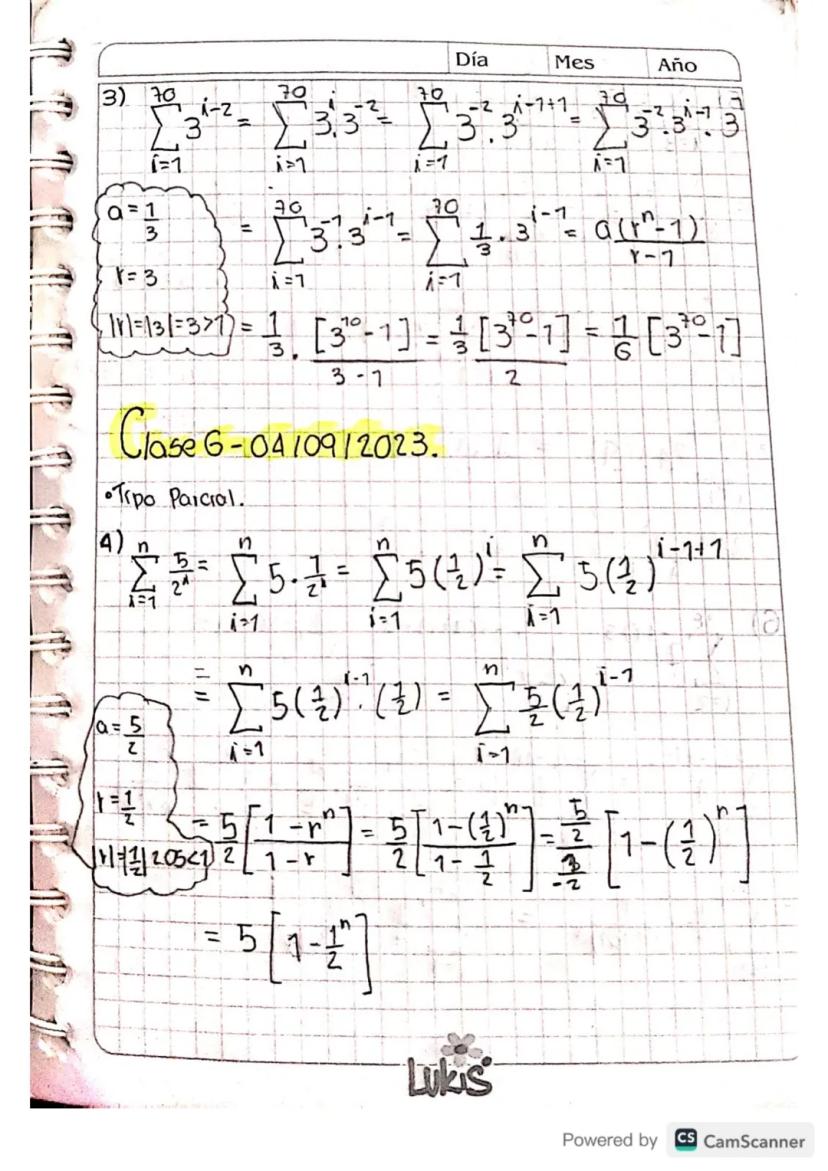 Día Mes Año
3) ∑_{i=1}^{10} 3^{i-2} = ∑_{i=1}^{10} 3^{i}.3^{-2} = ∑_{i=1}^{10} 3^{-2}.3^{i-1+1} = ∑_{i=1}^{10} 3^{-2}.3^{i-1}.3^{1}
a = 1/3
= ∑_{i=1}^{10} 3^{-1}.3^{i-1} = ∑_{i=1}^{10} 1/3 . 3^{i-1} = a(r^{n}-1)/(r-1)
r = 3
|r|=|3|=3>1
= 1/3 . [3^{10}-1]/(3-1) = 1/3 [3^{10}-1]/2 = 1/6 [3^{10}-1]
Clase 6-04/09/2023.
•Tipo Parcial.
4) ∑_{i=1}^{n} 5/2^{i} = ∑_{i=1}^{n} 5 . 1/2^{i} = ∑_{i=1}^{n} 5(1/2)^{i} = ∑_{i=1}^{n} 5(1/2)^{i-1+1}
= ∑_{i=1}^{n} 5(1/2)^{i-1}.(1/2) = ∑_{i=1}^{n} 5/2 (1/2)^{i-1}
a = 5/2
r = 1/2
= 5/2 [(1-r^{n})/(1-r)] = 5/2 [(1-(1/2)^{n})/(1-1/2)] = (5/2)/(1/2) [1-(1/2)^{n}]
= 5 [1 - 1^{n}/2]
LUKIS
Powered by CS CamScanner